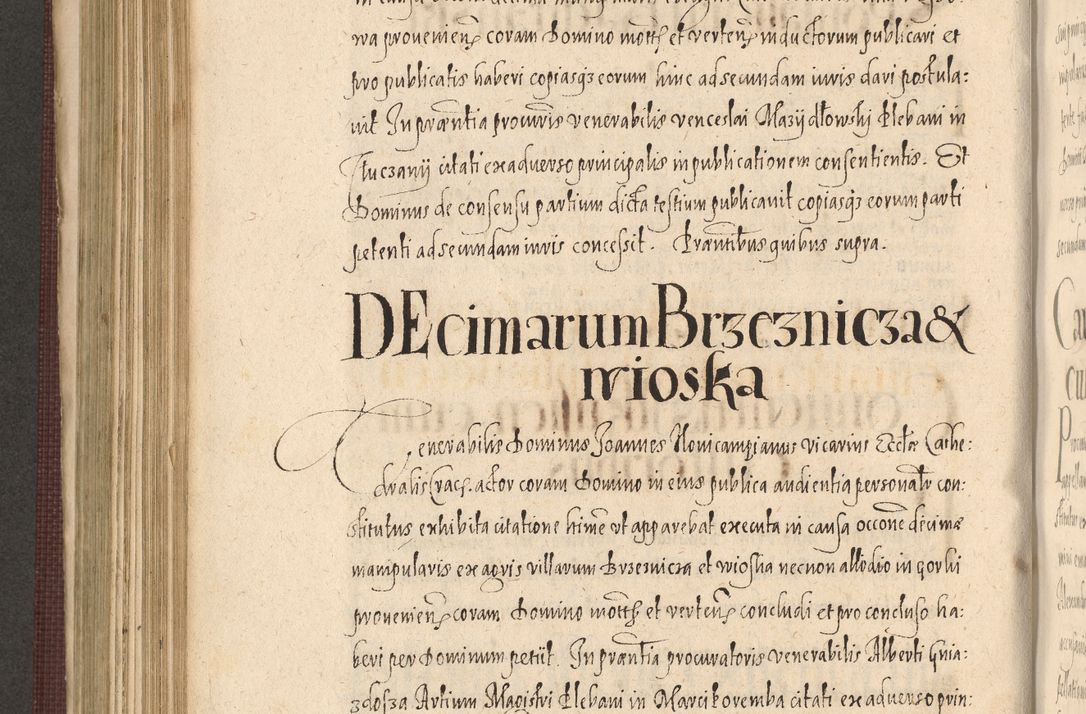 va provenien̄ coram Domino mot̄t̄ et verten̄ inductorum publicari et
pro publicatis haberi copiasq3 eorum hinc ad secundam iuris dari postula:
vit In præntia procuris venerabilis venceslai Mazÿdłowskj Plebani in
Tłuczanij citati ex adverso principalis in publicationem consentientis. Et
Dominus de consensu partium dicta testium publicavit copiasq3 eorum parti
petenti ad secundam iuris concessit. Præntibus quibus supra.
DEcimarum Brzeznicza &
wioska
Venerabilis Dominus Joannes Novicampianus vicarius Ecclæ Cathe:
dralis Crac̄. actor coram Domino in eius publica audientia personalr con:
stitutus exhibita citatione htime vt apparebat executa in causa occone decimæ
manipularis ex agris villarum Brzeznicza et wioska necnon allodio in gorki
provenien̄ coram Domino mot̄t̄ et verten̄ concludi et pro concluso ha:
beri per Dominum petiit. In præntia procuratoris venerabilis Alberti Gnia:
zdosza Artium Magistri Plebani in Marciporemba citati ex adverso prin: